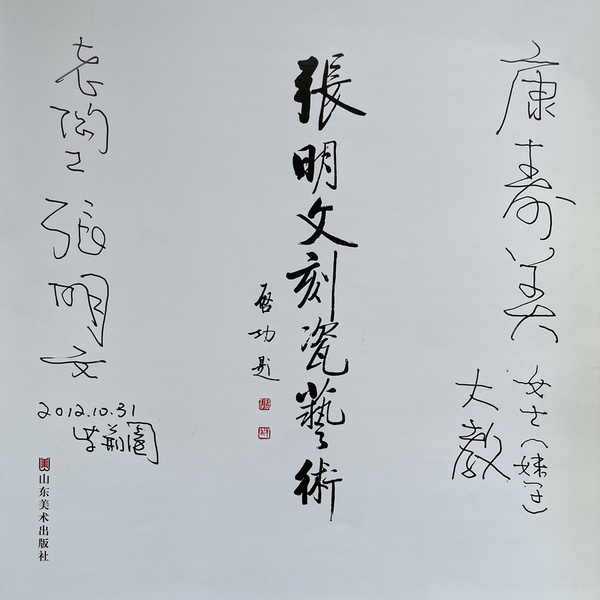 康寿美
女士(妹子)
大教
張明文刻瓷藝術
啓功题
老陶工
張明文
2012.10.31
山东美术出版社